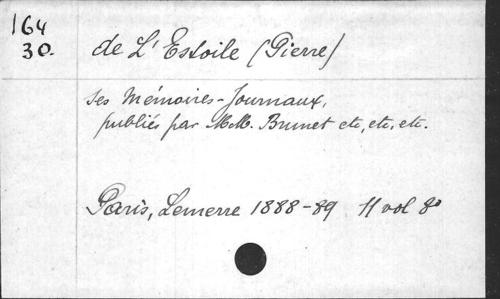 164
30.
de L'Estoile (Pierre)
ses Mémoires-Journaux,
publiés par MM. Brunet etc, etc. etc.
Paris, Lemerre 1888-89 11 vol 8º